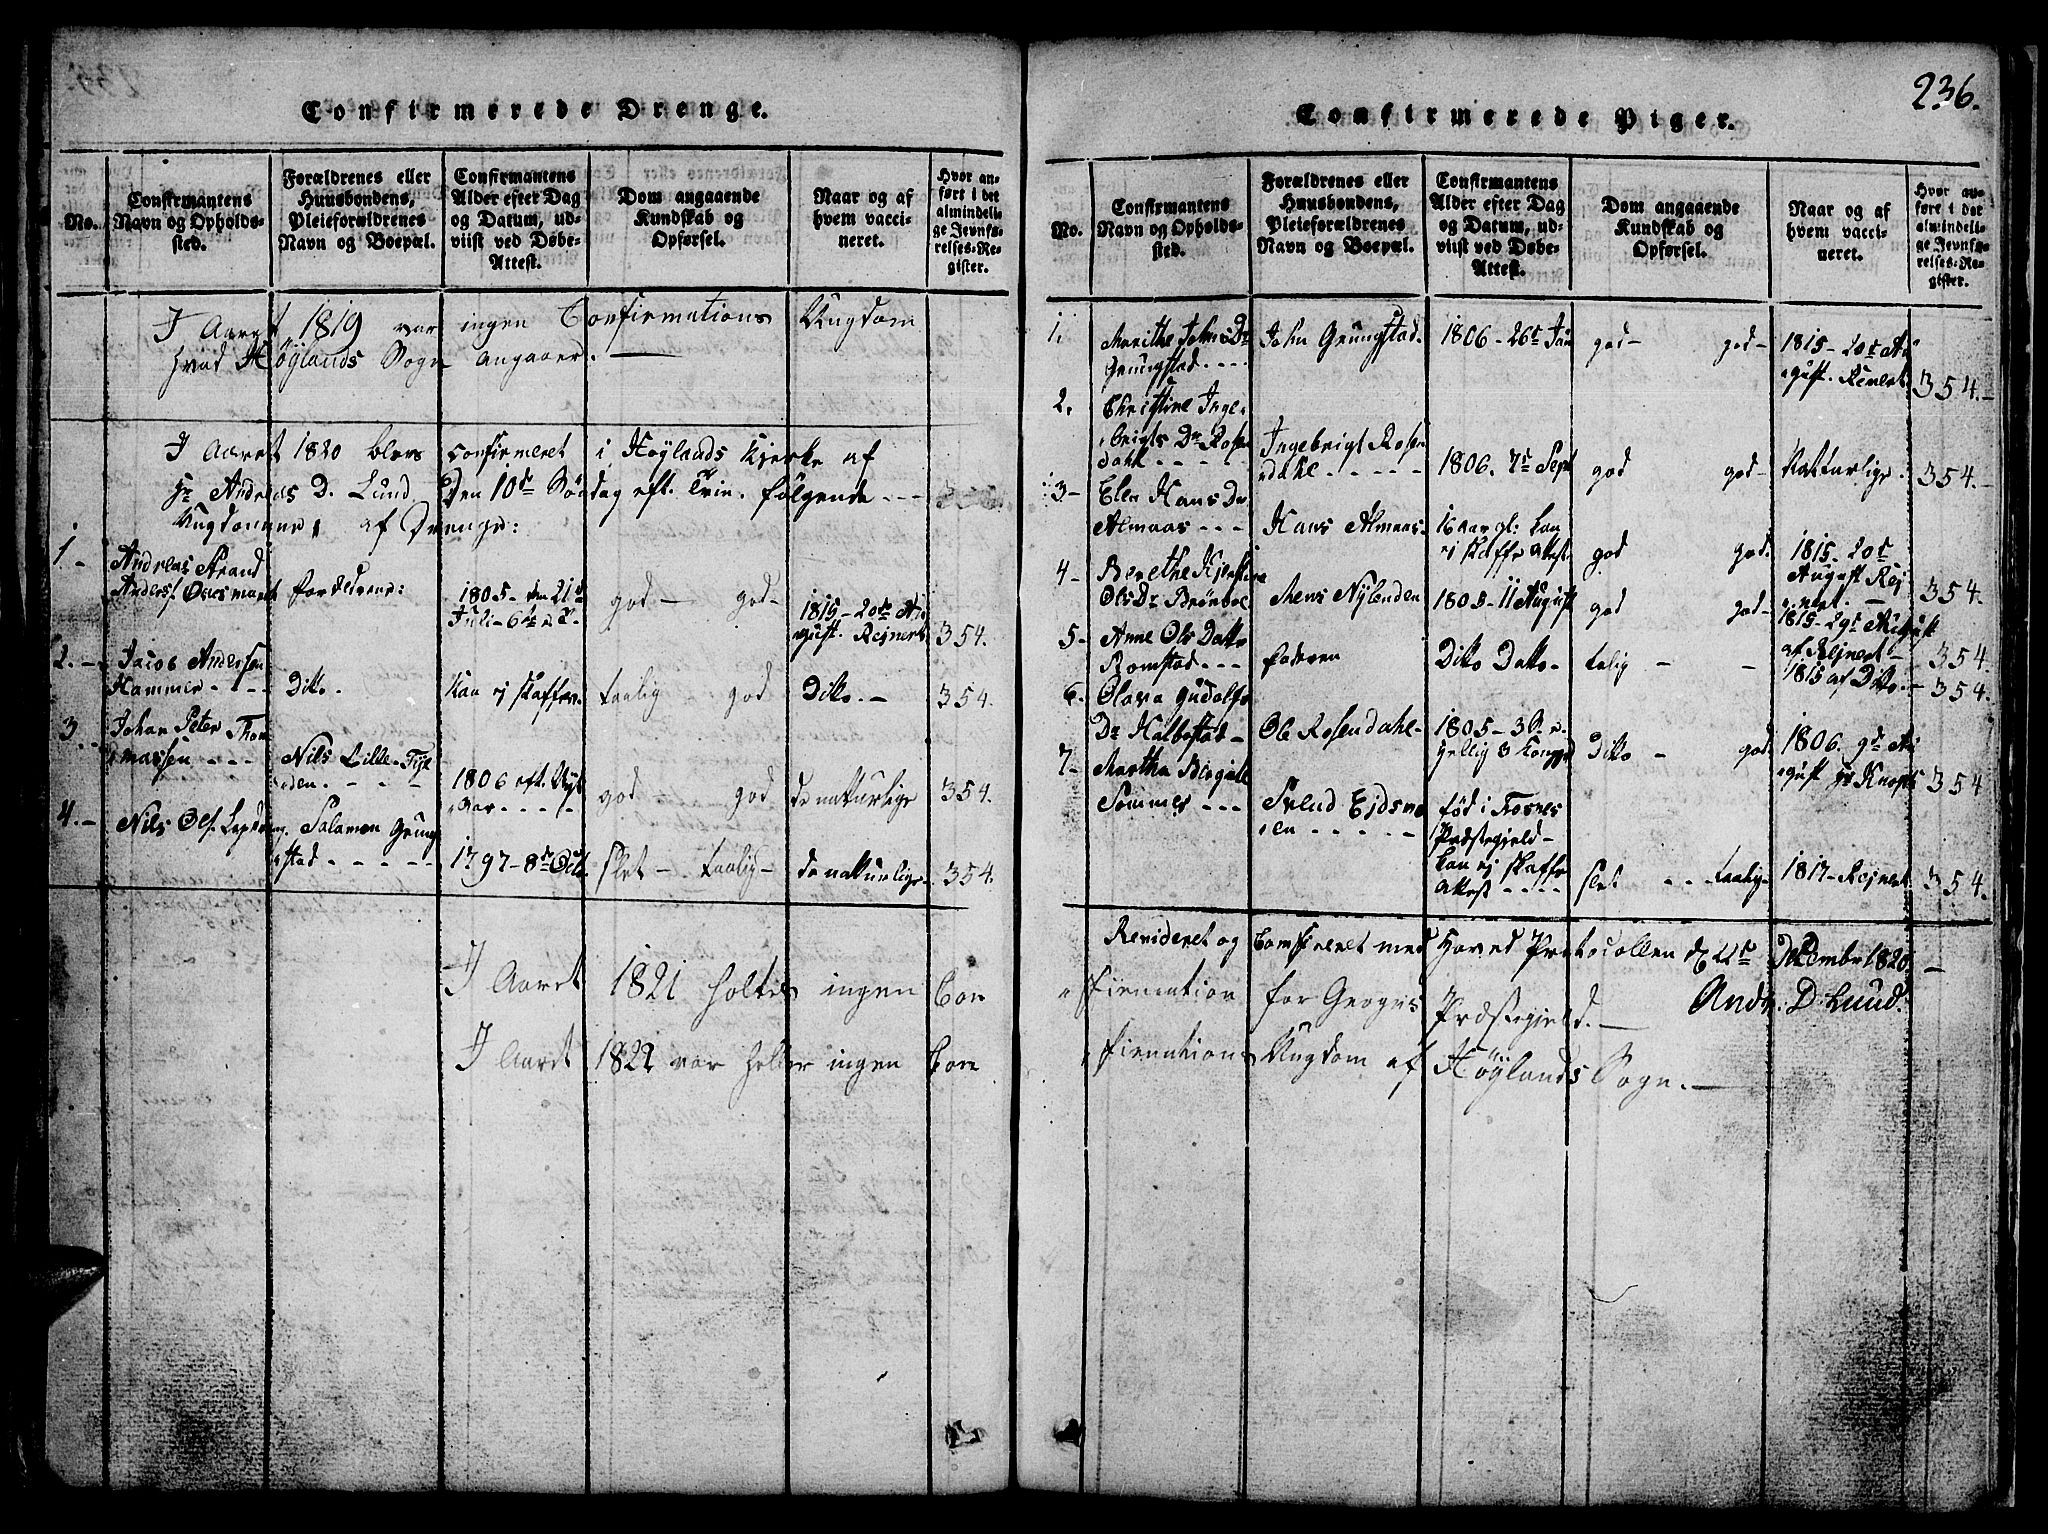 236.
Confirmerede Drenge.
No.
Confirmantens
Navn og Opholds-
sted.
Forældrenes eller
Huusbondens,
Pleieforældrenes
Navn og Boepæl.
Confirmantens
Alder efter Dag
og Datum, ud-
viist ved Døbe-
Attest.
Dom angaaende
Kundskab og
Opførsel.
Naar og af
hvem vacci-
neret.
Hvor an-
ført i det
almindeli-
ge Jevnfø-
relses-Re-
gister.
I Aaret 1819 var ingen Confirmations Ungdom
hvad Höylands Sogn angaaer. —
I Aaret 1820 blev confirmeret i Höylands Kjerke af
Hr Andreas D. Lund Den 10de Söndag eft. Trin. følgende ---
Ungdommer, af Drenge:
1 -
Andreas Strand
Anders.
Forældrene:
1805 - den 21de
Juli -
god - god -
1815 - 20de Au
gust. Rejnert
354.
2. -
Jacob Andersen
Hammer - - -
Ditto.
Kan ej skaffes.
taalig god
Ditto. -
354.
3. -
Johan Peter Thom
massen - - -
Nils Lille-
den. - - -
1806 eft.
Aar - - - -
god god
De naturlige
354.
4. -
Nils Ols.
Salamon Grung
stad - - - - -
1797 - 8de Octb.
slet - taalig -
de naturlige.
354.
I Aaret 1821 holtes ingen Con
I Aaret 1822 var heller ingen Con
Confirmerede Piger.
No.
Confirmantens
Navn og Opholds-
sted.
Forældrenes eller
Huusbondens,
Pleieforældrenes
Navn og Boepæl.
Confirmantens
Alder efter Dag
og Datum, ud-
viist ved Døbe-
Attest.
Dom angaaende
Kundskab og
Opførsel.
Naar og af
hvem vacci-
neret.
Hvor an-
ført i det
almindeli-
ge Jevnfø-
relses-Re-
gister.
1.
Merethe Johns Dr
Grungstad. - - -
John Grungstad.
1806 - 26de Jan
god - god -
1815 - 20de Au
gust. Rejnert.
354. -
2.
Christine Inge-
brigts Dr Rosen
dahl - - - -
Ingebrigt Rosen
dahl - - - - -
1806. 7de Sept
god god -
Naturlige.
354. -
3 -
Elen Hans Dr
Almaas - - -
Hans Almaas.
16 Aar gl: kan
ej skaffe Attest
god god.
1815 - 20de
August Rej
nert. -
354.
4 -
Berethe Kjerstine
Ols Dr Brönbol
Mens Nylenden
1805 - 11 August
god god -
1815 - 29de August
af Rejnert -
354.
5 -
Anne Ols Datter
Romstad - - -
Faderen
Ditto Datto -
talig - -
1815 af Ditto. -
354.
6.
Olava Gudolfs
Dr Halbostad -
Ole Rosendahl -
1805 - 3 D. e.
Hellig 3 Kong.
Ditto - god
1806. 9de Au
gust Hr
354
7 -
Martha Birgitte
Sommer - - -
Svend Ejdsmo
en - - - - -
född i Fosnes
Præstegjeld -
kan ej skaffe
Attest - - - -
slet - - - taalig -
1817 - Rejnert.
354.
Revideret og Confereret med Hoved Protocollen d. 22de December 1820. -
Andr. D. Lund.
firmation for Grogus Præstegjeld. -
firmations Ungdom af Höylands Sogn. -